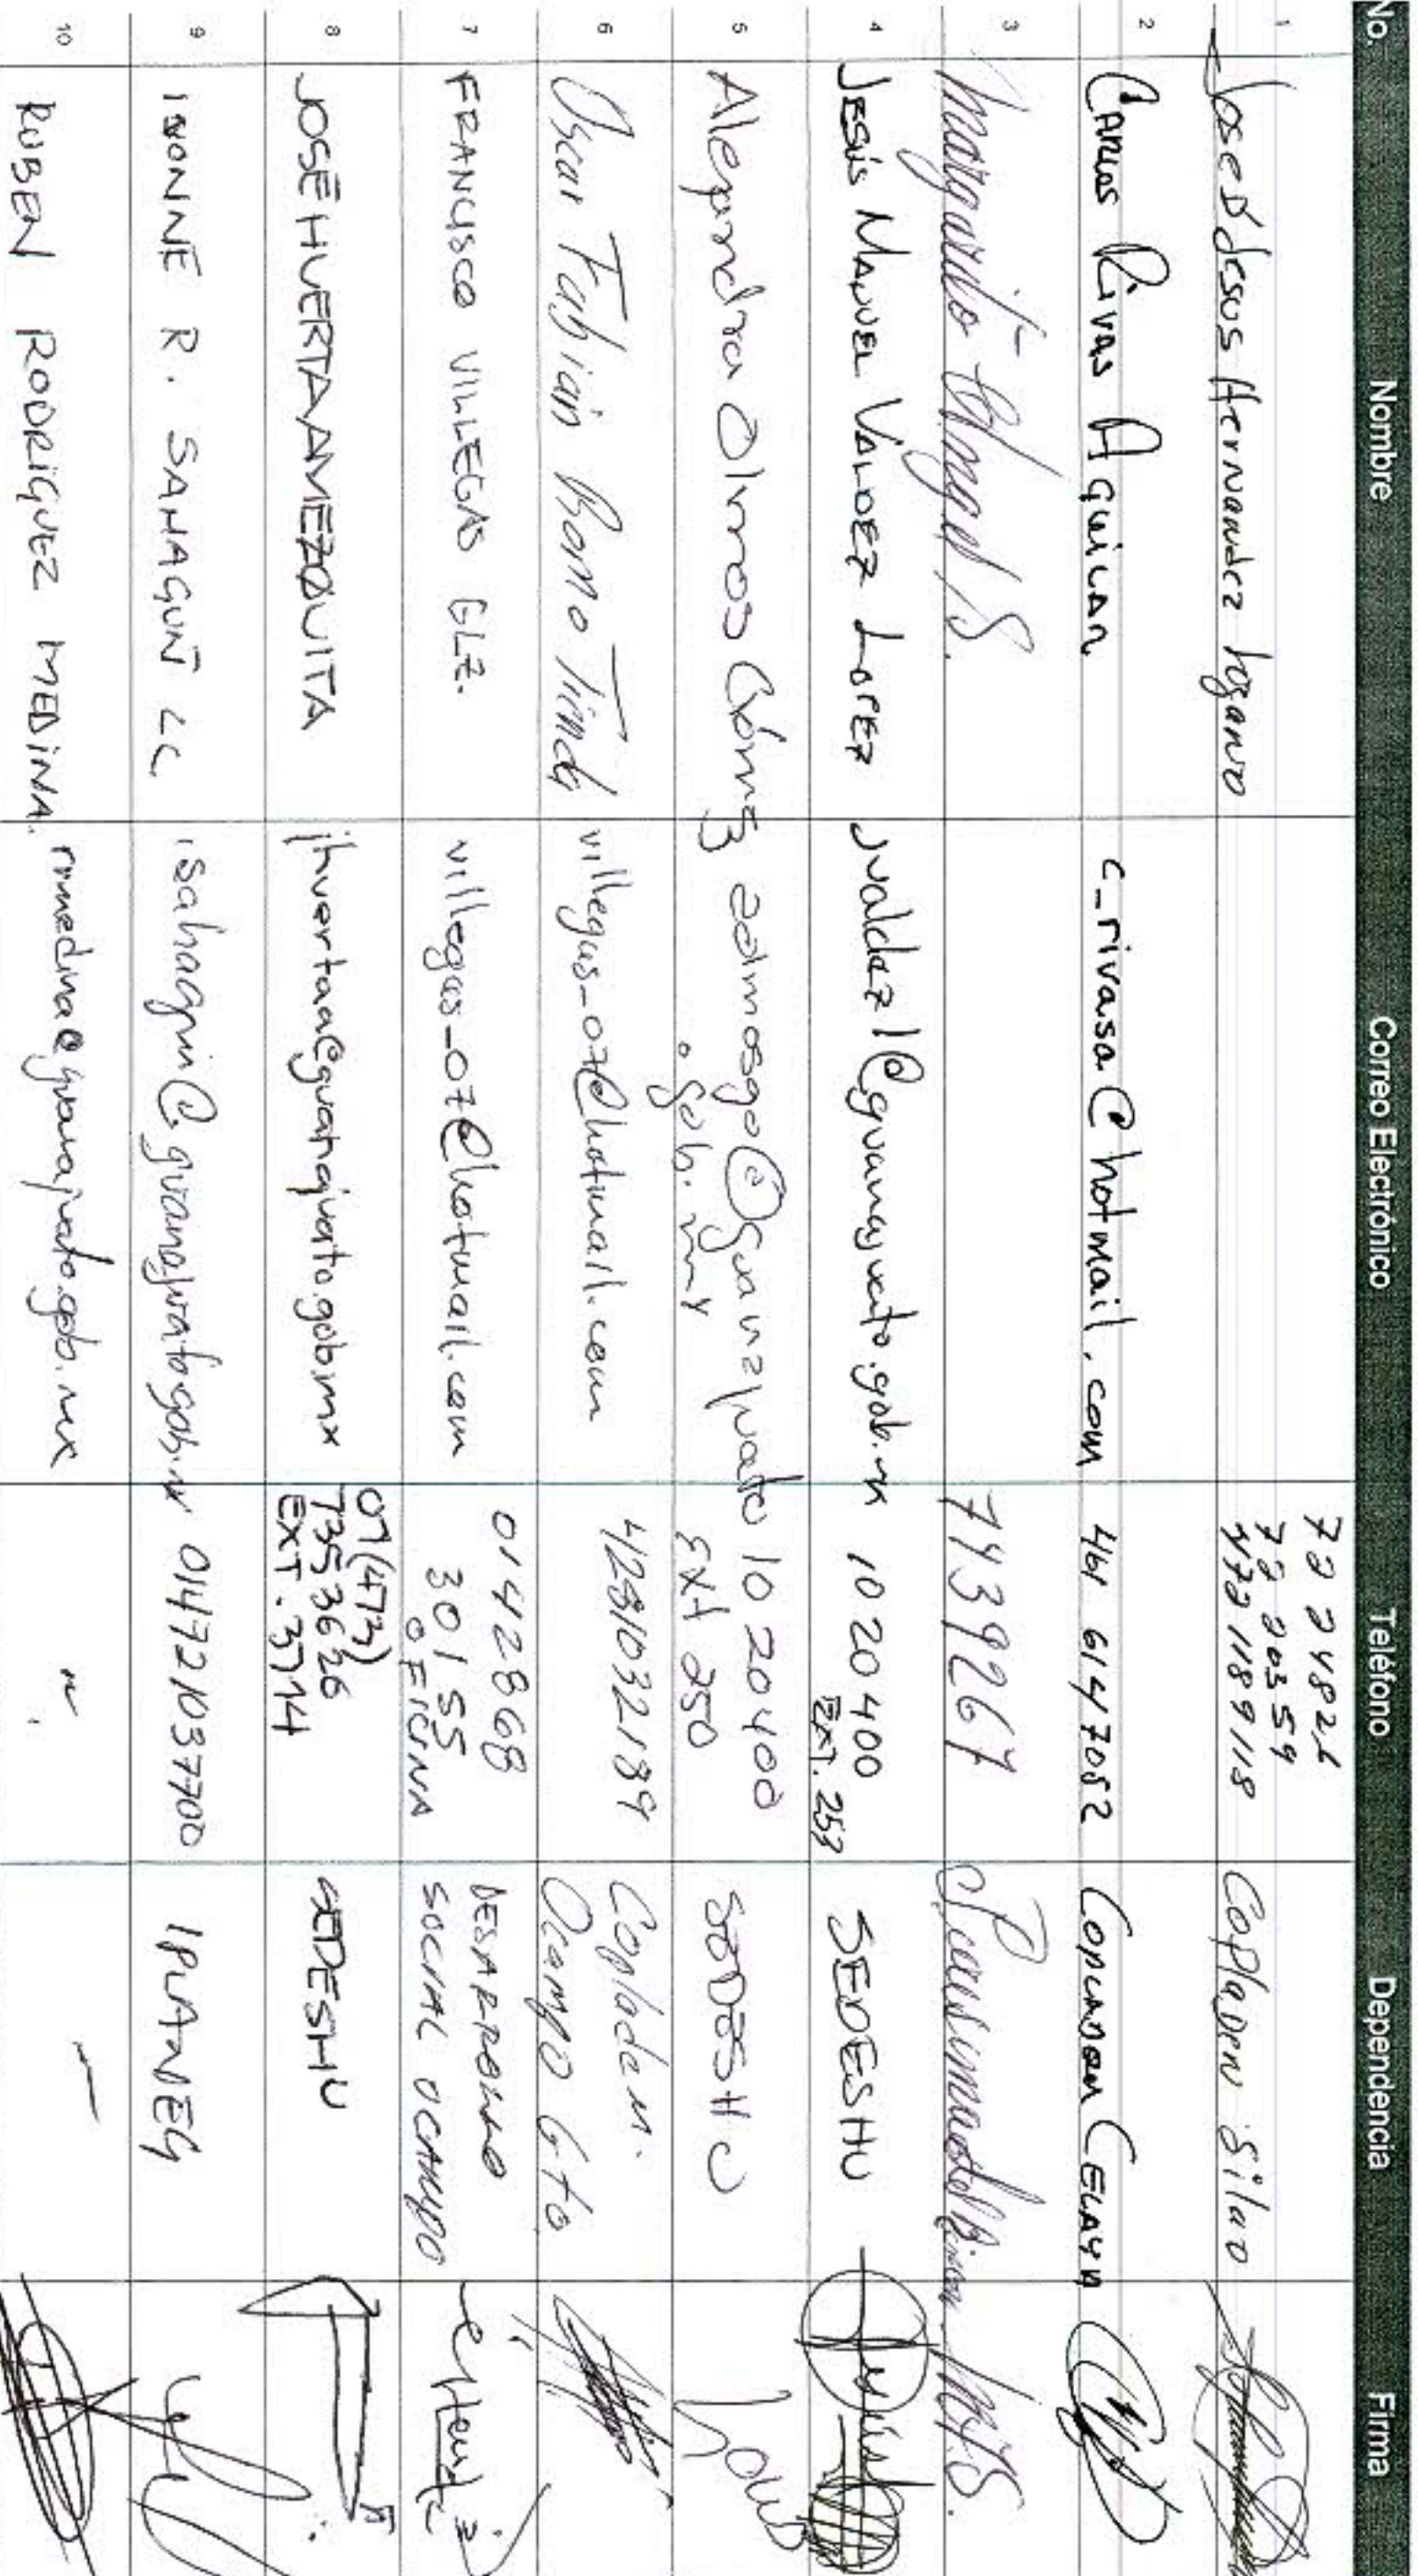 No. Nombre Correo Electrónico Teléfono Dependencia Firma
1 Jose D Jesus Hernandez 72 2 48 26
72 2 03 59
472 118 9118 Copladem Silao
2 Carlos Rivas Aguilar c_rivasa@hotmail.com 461 614 7052 Celaya
3 Margarito Rangel S. 7439267
4 Jesús Manuel Valdez Lopez jvaldezl@guanajuato.gob.m 10 20 400
EXT. 253 SEDESHU
5 Alejandra Olmos Gómez aolmosgo@guanajuato
.gob.mx 10 20 400
Ext 250 SEDESHU
6 Oscar Fabian villegas_07@hotmail.com 4281032189 Copladem.
Ocampo Gto
7 FRANCISCO VILLEGAS GLZ. villegas_07@hotmail.com 0142868
30155
OFICINA DESARROLLO
SOCIAL OCAMPO
8 JOSÉ HUERTA AMEZQUITA jhuertaa@guanajuato.gob.mx 01(473)
7353626
EXT. 3714 SEDESHU
9 IVONNE R. SAHAGUN isahagun@guanajuato.gob.m 014721037700 IPLANEG
10 RUBEN RODRIGUEZ MEDINA. rrmedina@guanajuato.gob.mx " —